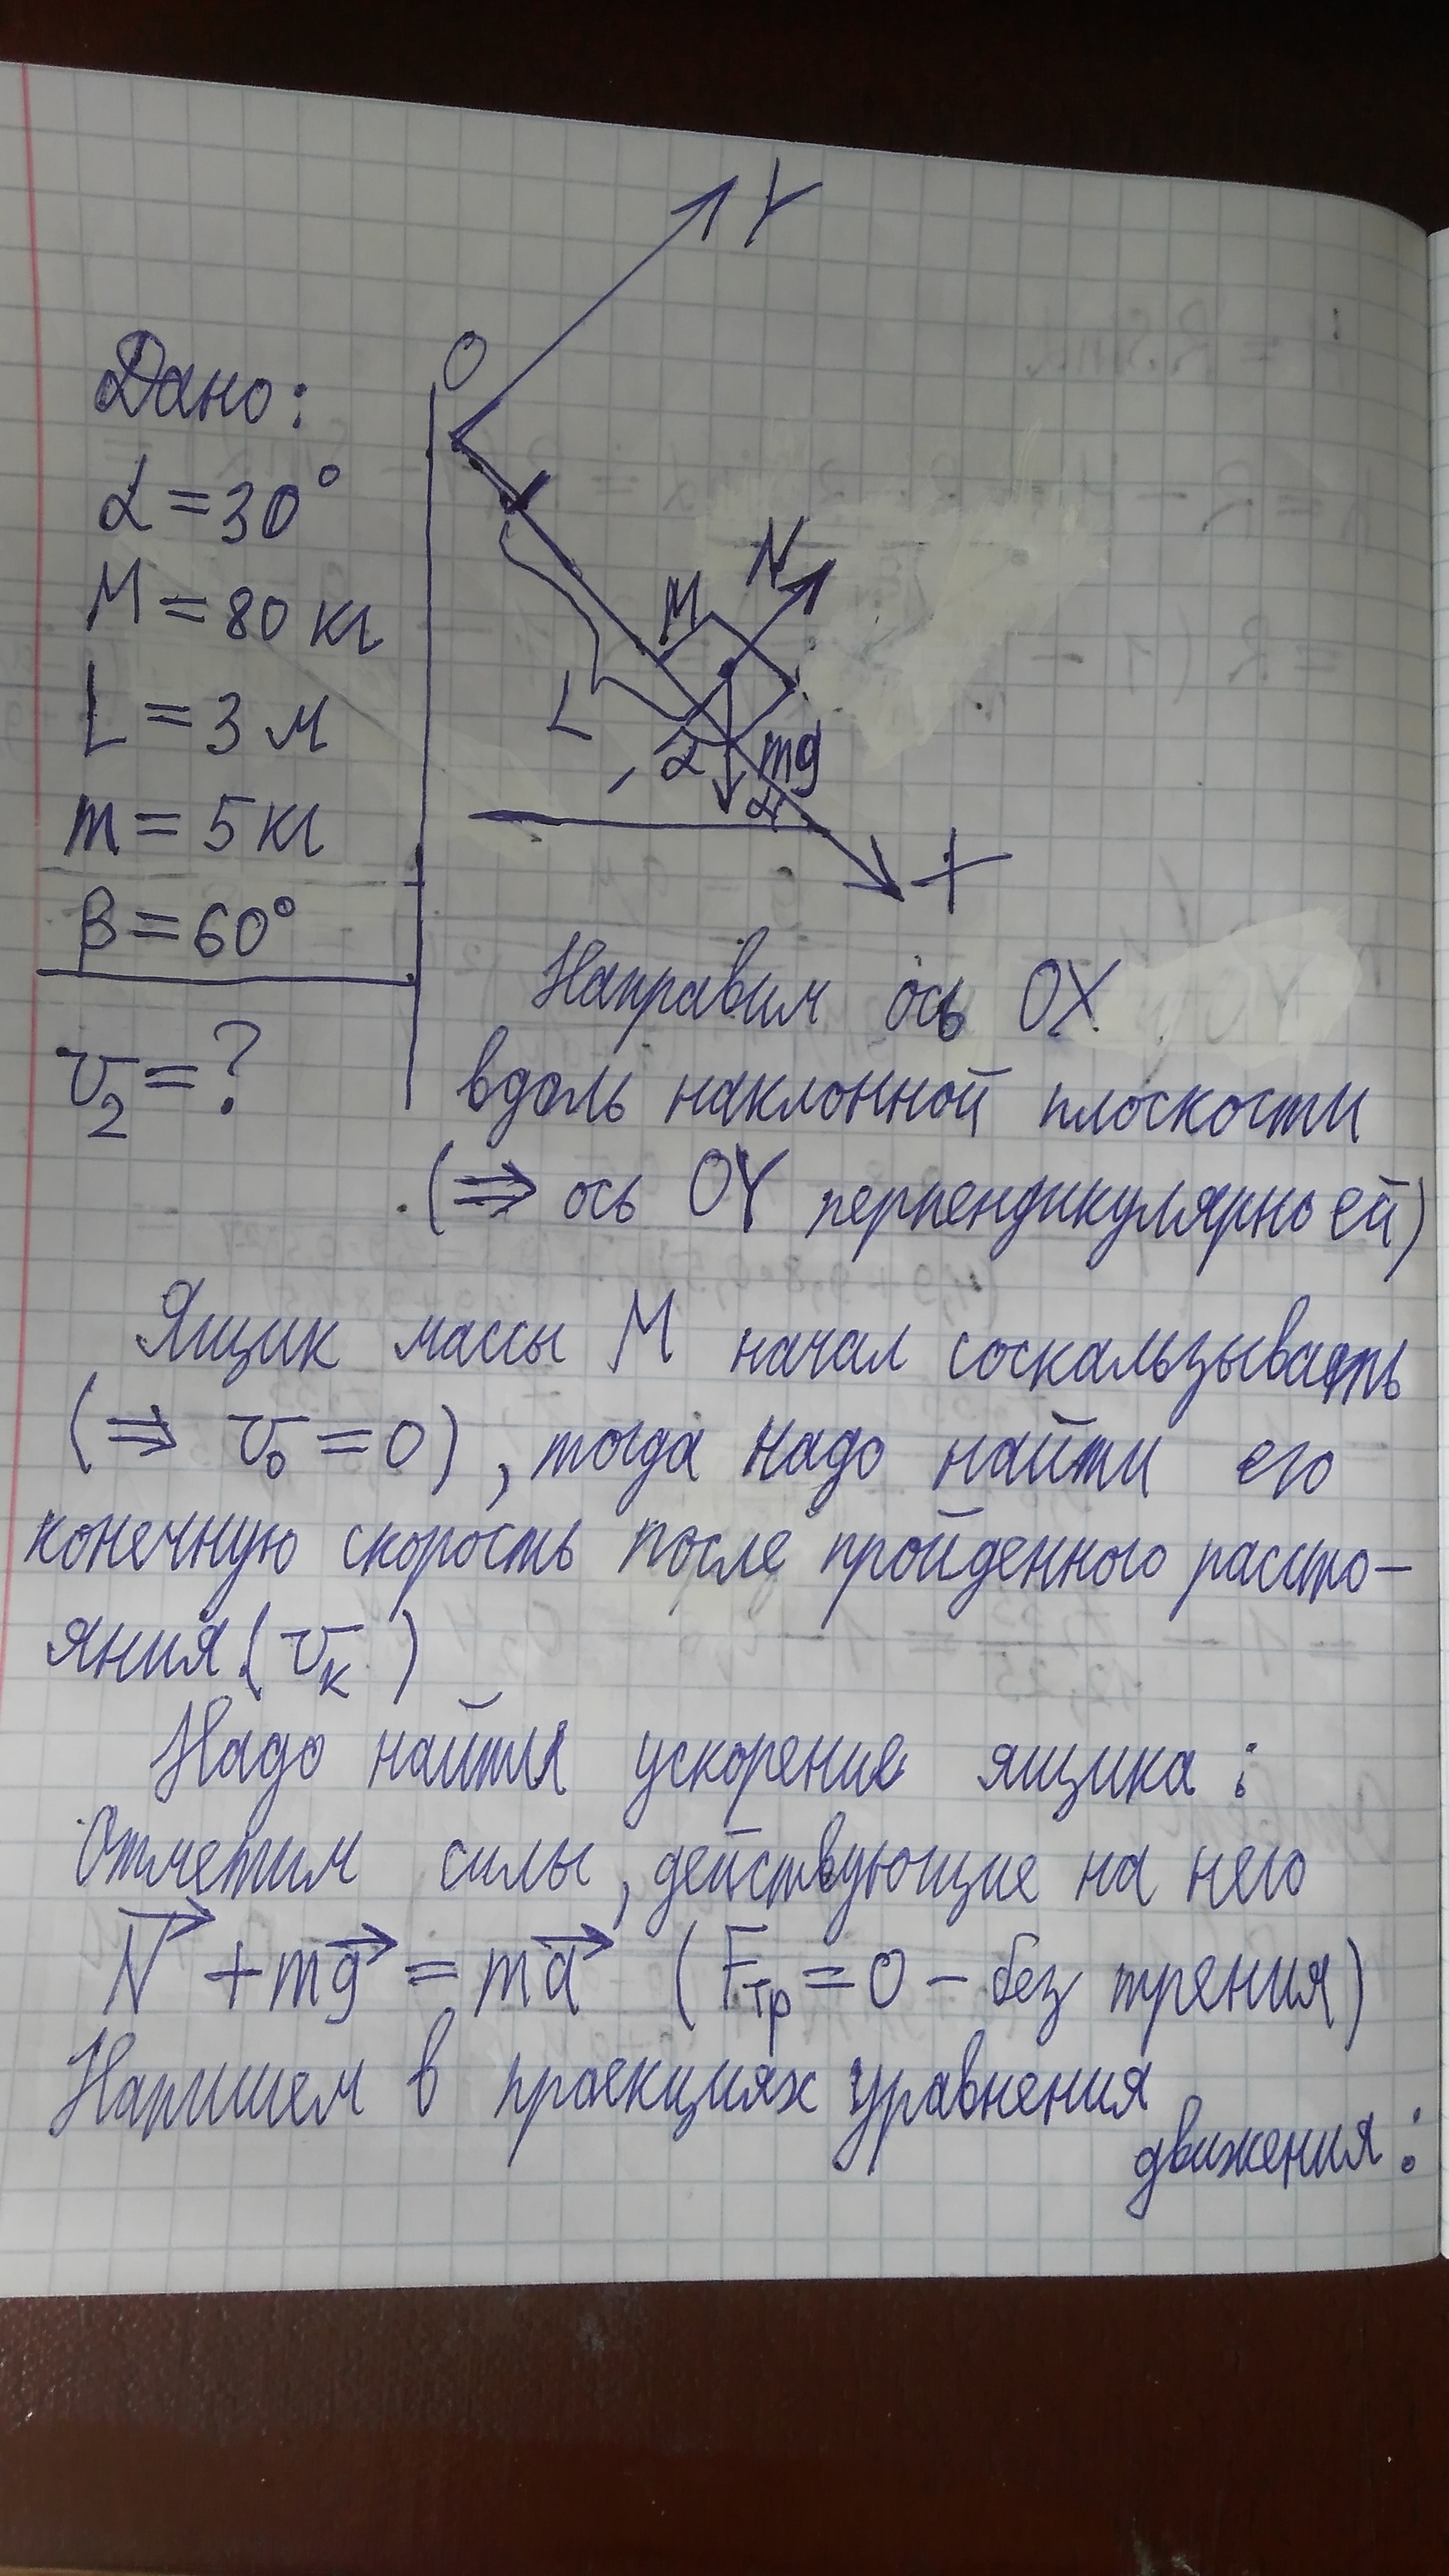 Y
O
Дано:
α = 30°
M = 80 кг
L = 3 м
m = 5 кг
β = 60°
v₂ = ?
N
M
L
α
mg
α
X
Направим ось OX
вдоль наклонной плоскости
(⇒ ось OY перпендикулярно ей)
Ящик массы M начал соскальзывать
(⇒ v₀ = 0), тогда надо найти его
конечную скорость после пройденного расто-
яния (vк)
Надо найти ускорение ящика:
Отметим силы, действующие на него
N⃗ + mg⃗ = ma⃗ (Fтр = 0 – без трения)
Напишем в проекциях уравнения
движения: